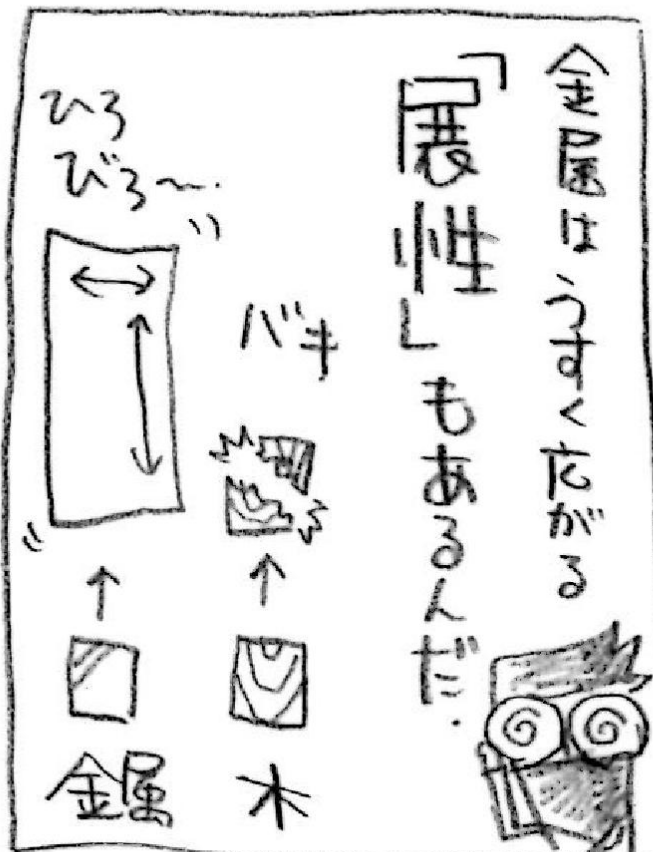 金属はうすく広がる
「展性」もあるんだ.
バキ
木
ひろ
びろ〜.
金属